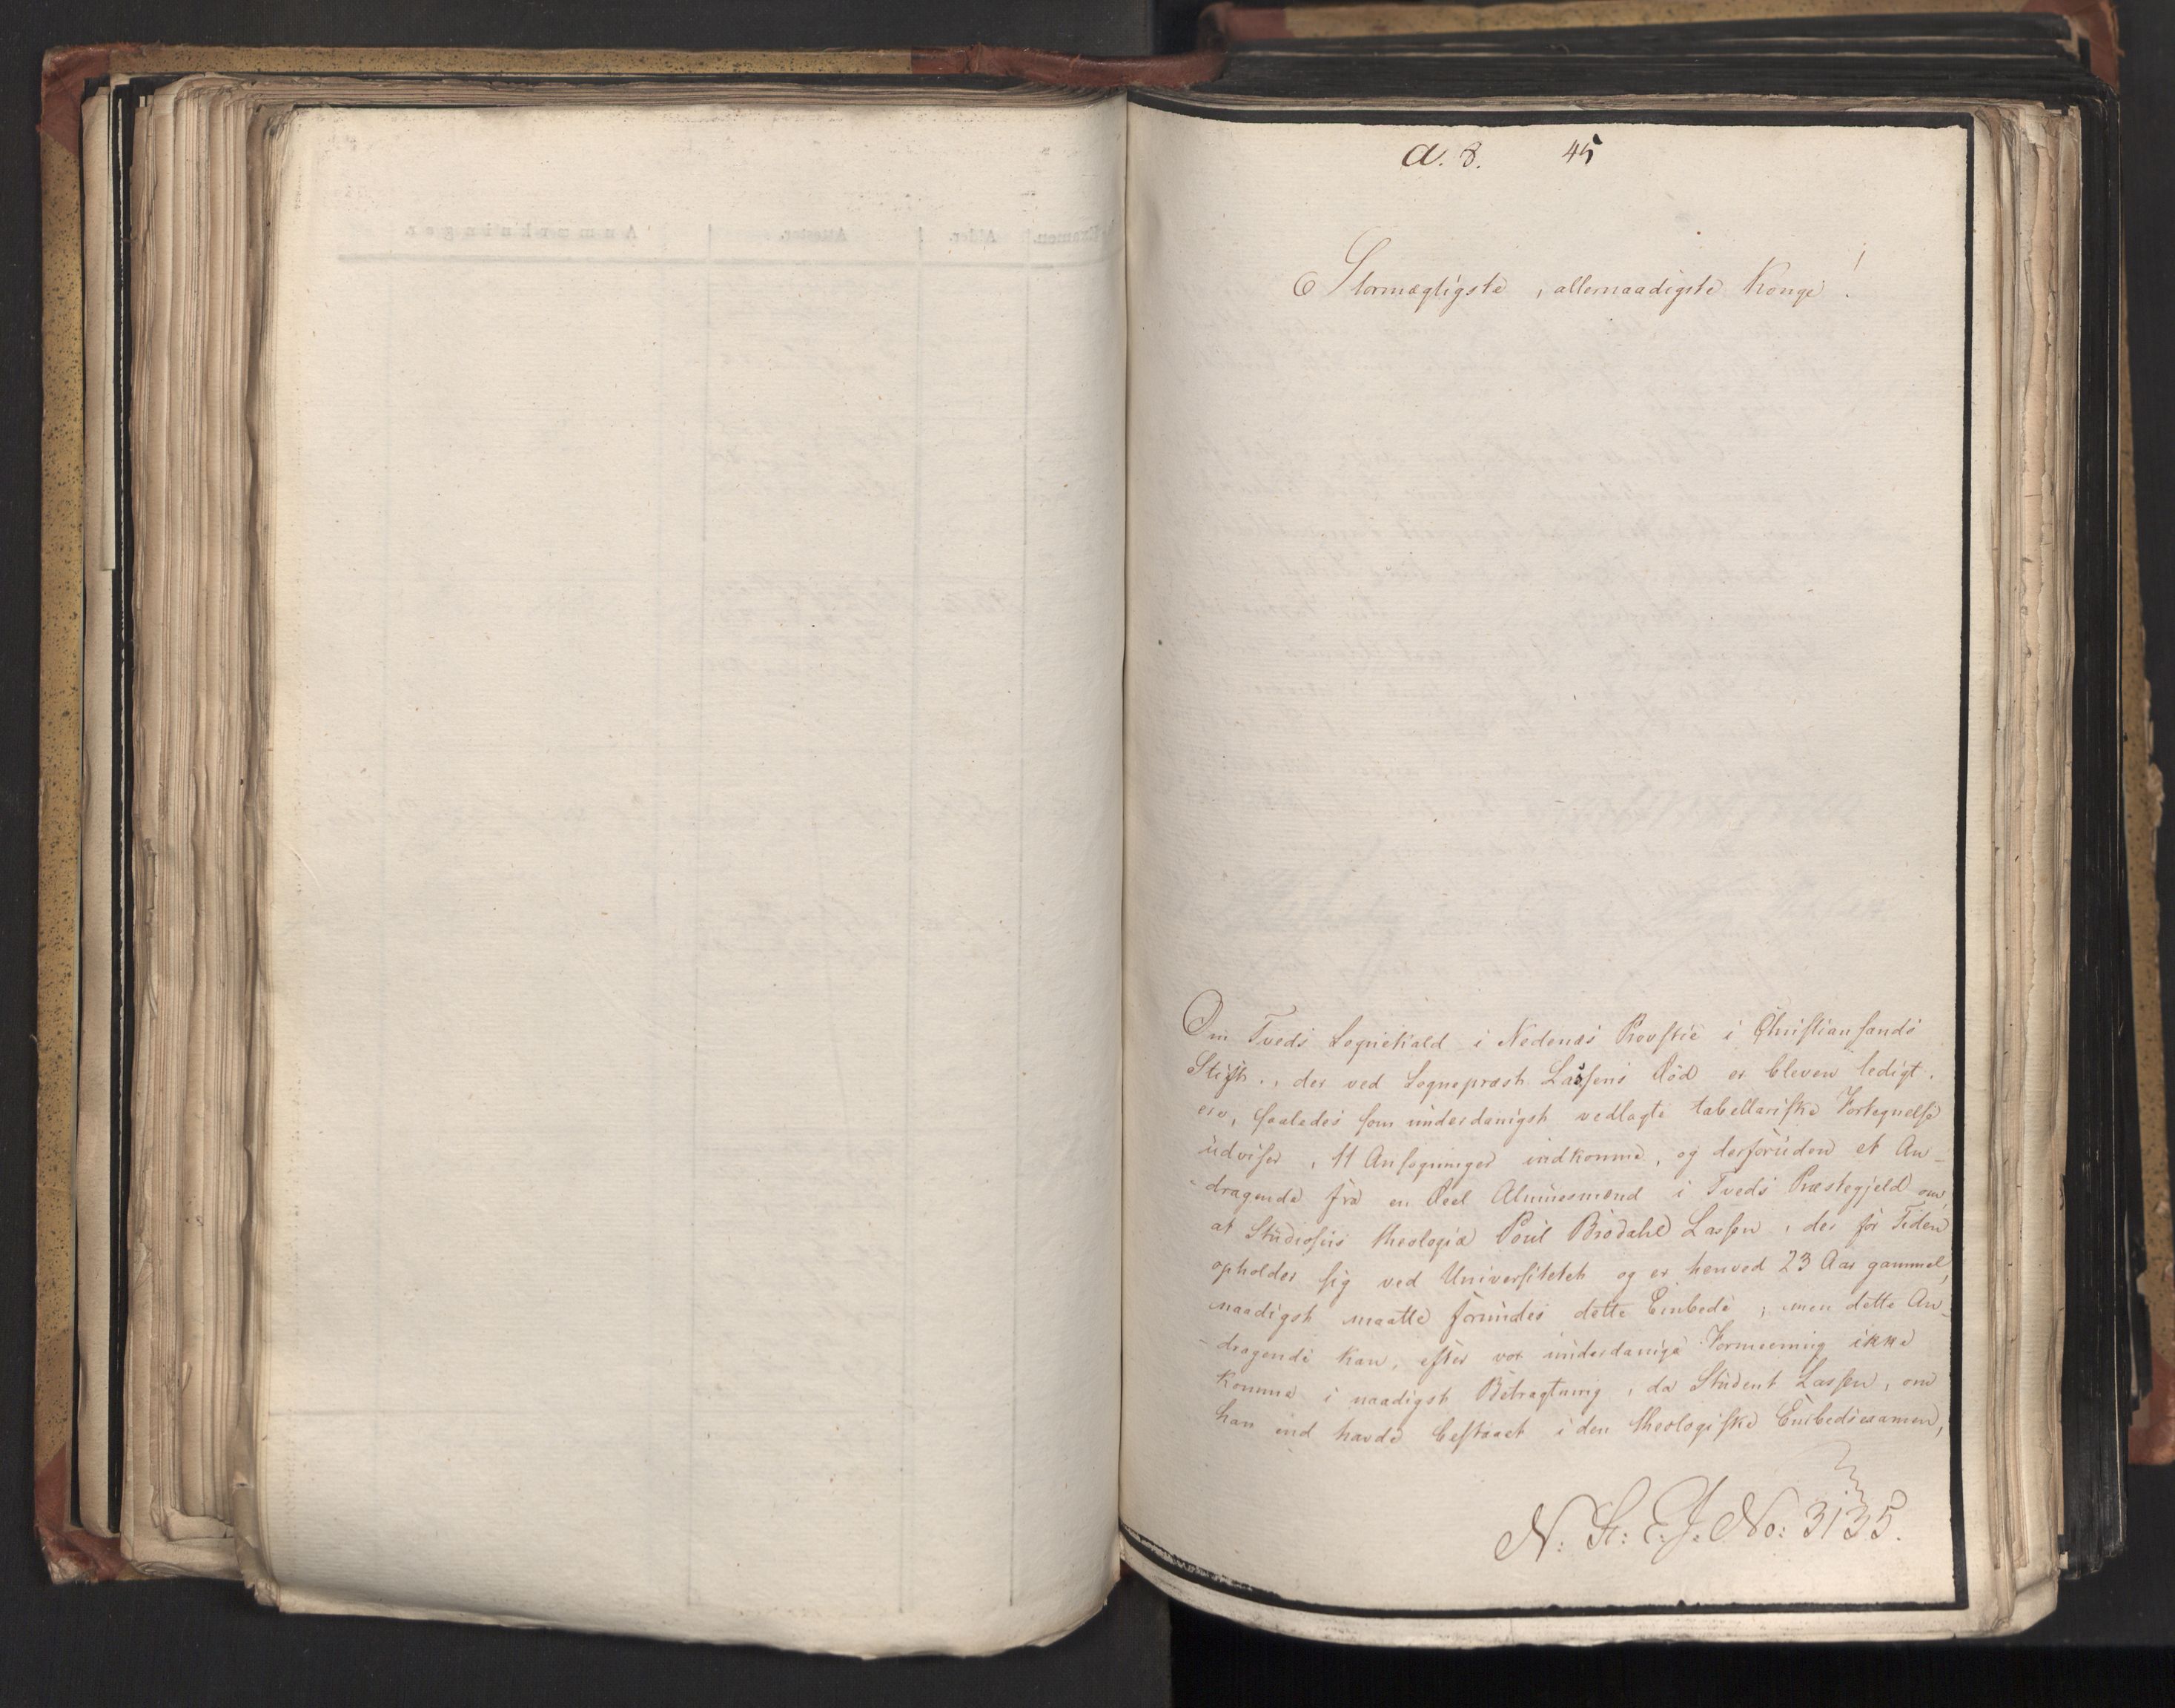 a. 8. 45
Stormægtigste, allernaadigste Konge!
Om Tveds Sognekald i Nedenæs Provstie i Christiansands
Stift., der ved Sogneprest Lassens Död er bleven ledigt,
ere, saaledes som underdanigst vedlagte tabellariske Fortegnelse
udviser, 11 Ansøgninger indkomne, og desforuden et An-
-dragende fra en Deel Almuesmænd i Tveds Præstegjeld om,
at Studiosus theologiæ Poul Brodahl Lassen, der for Tiden
opholder sig ved Universitetet og er henved 23 Aar gammel,
naadigst maatte forundes dette Embede; men dette An-
-dragende kan, efter vor underdanige Formeening ikke
komme i naadigst Betragtning, da Student Lassen, om
han end havde bestaaet i den theologiske Embedsexamen,
N: St: E. J. No: 3135.